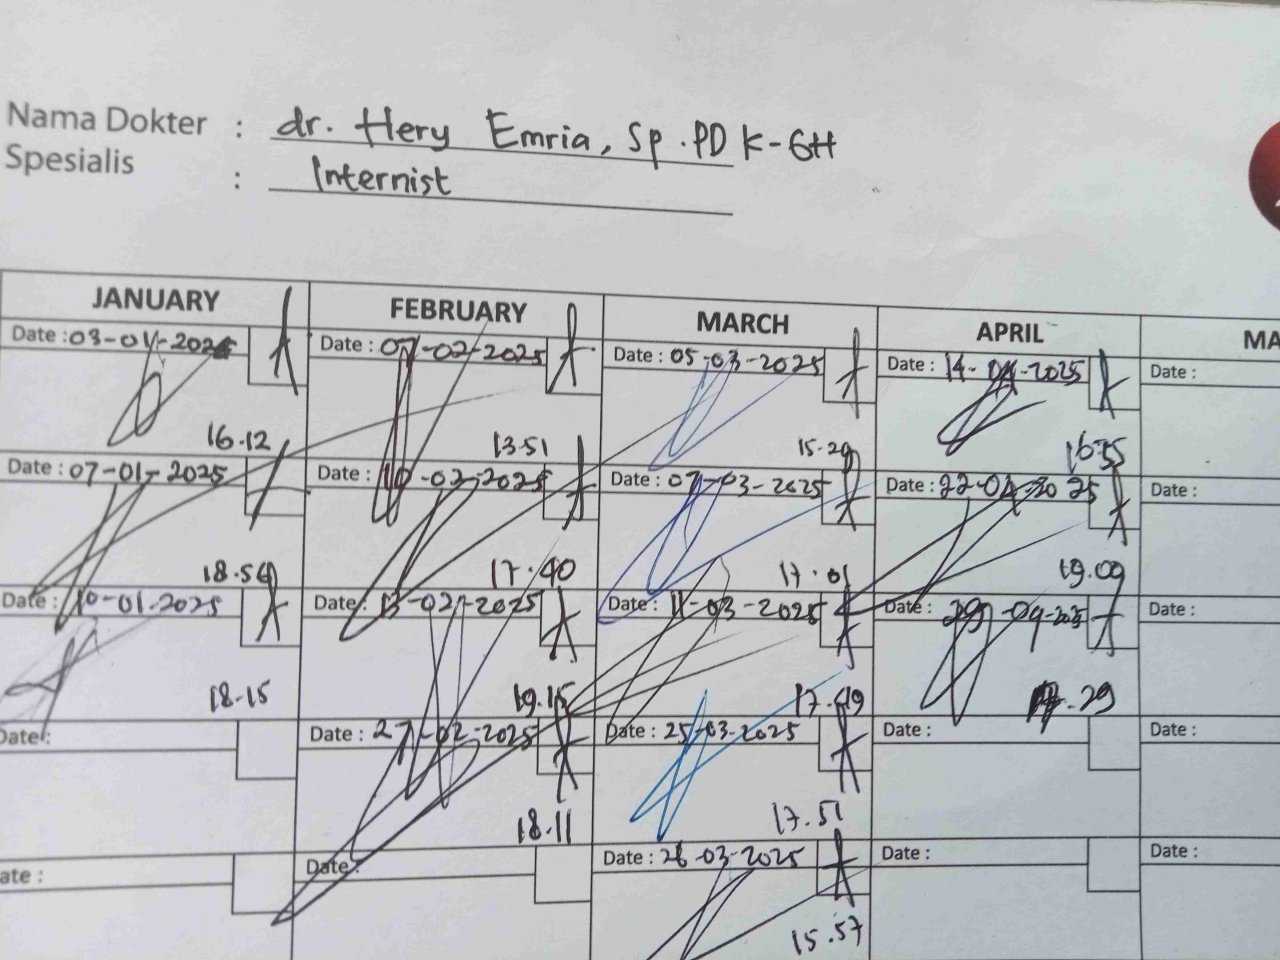 Nama Dokter : dr. Hery Emria, Sp.PD K-GH
Spesialis : Internist
JANUARY FEBRUARY MARCH APRIL MA
Date : 03-01-2025 Date : 07-02-2025 Date : 05-03-2025 Date : 14-04-2025 Date :
16.12 13.51 15.29 16.55
Date : 07-01-2025 Date : 10-02-2025 Date : 07-03-2025 Date : 22-04-2025 Date :
18.54 17.40 17.01 19.09
Date : 10-01-2025 Date : 13-02-2025 Date : 11-03-2025 Date : 29-04-2025 Date :
18.15 19.15 17.49 .29
Date : Date : 27-02-2025 Date : 25-03-2025 Date : Date :
18.11 17.51
ate : Date : Date : 26-03-2025 Date : Date :
15.57